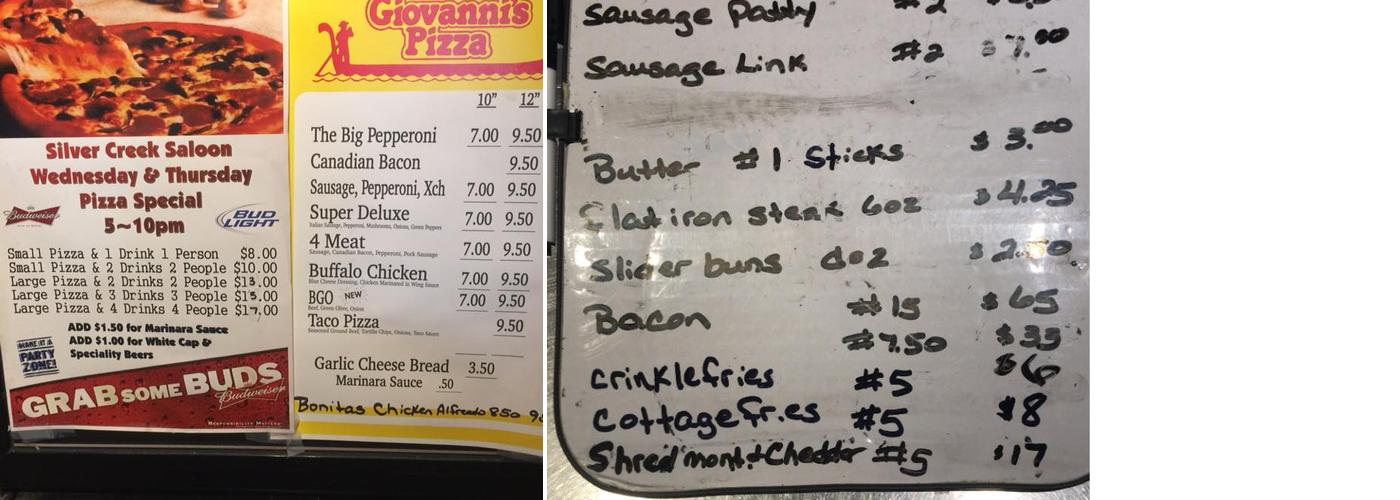 Silver Creek Saloon
Wednesday & Thursday
Pizza Special
5~10pm
Budweiser
BUD LIGHT
Small Pizza & 1 Drink 1 Person $8.00
Small Pizza & 2 Drinks 2 People $10.00
Large Pizza & 2 Drinks 2 People $13.00
Large Pizza & 3 Drinks 3 People $15.00
Large Pizza & 4 Drinks 4 People $17.00
ADD $1.50 for Marinara Sauce
ADD $1.00 for White Cap &
Speciality Beers
MAKE IT A
PARTY
ZONE!
GRAB SOME BUDS
Budweiser
Responsibility Matters
Giovanni's
Pizza
10" 12"
The Big Pepperoni 7.00 9.50
Canadian Bacon 9.50
Sausage, Pepperoni, Xch 7.00 9.50
Super Deluxe 7.00 9.50
Italian Sausage, Pepperoni, Mushrooms, Onions, Green Peppers
4 Meat 7.00 9.50
Sausage, Canadian Bacon, Pepperoni, Pork Sausage
Buffalo Chicken 7.00 9.50
Blue Cheese Dressing, Chicken Marinated in Wing Sauce
BGO NEW 7.00 9.50
Beef, Green Olive, Onion
Taco Pizza 9.50
Seasoned Ground Beef, Tortilla Chips, Onions, Taco Sauce
Garlic Cheese Bread 3.50
Marinara Sauce .50
Bonitas Chicken Alfredo 850
Sausage Patty #2
Sausage Link #2 $7.00
Butter #1 Sticks $3.00
Flat iron steak 6oz $4.25
Slider buns doz $2.50
Bacon #15 $65
#7.50 $33
crinklefries #5 $6
cottagefries #5 $8
Shred mont.+Cheddar #5 $17